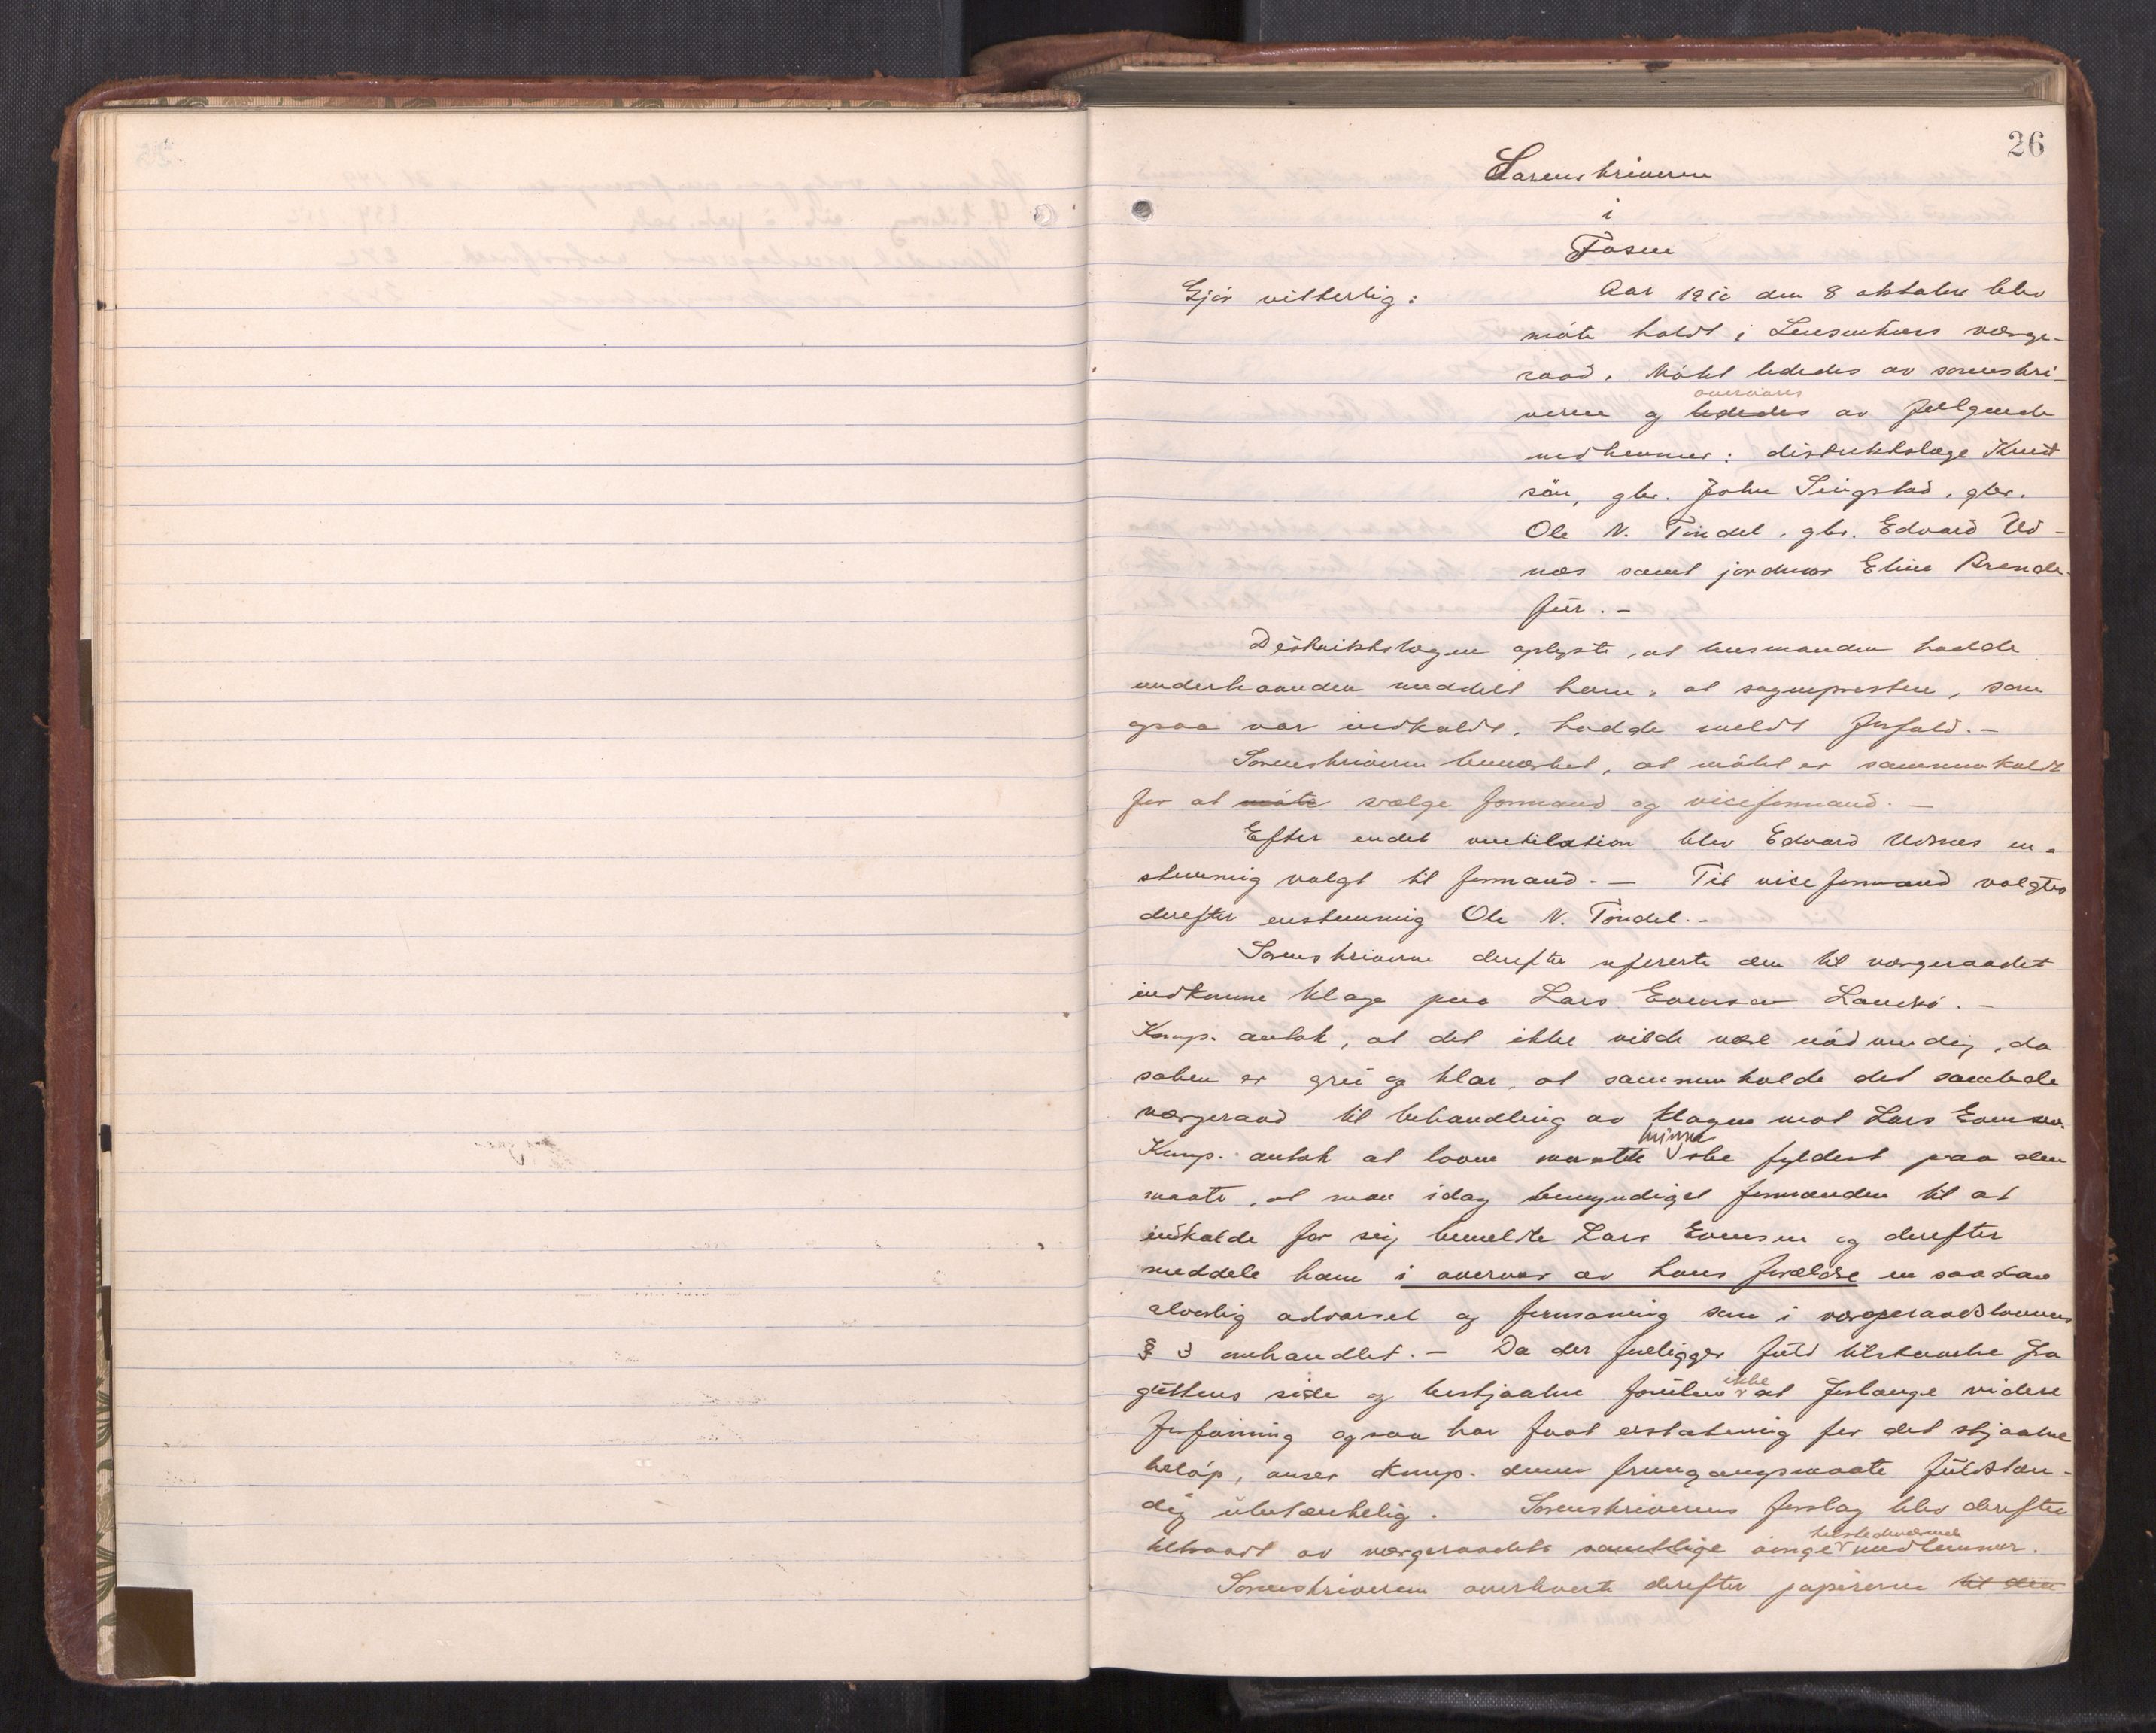 26
Sorenskriveren
i
Fosen
Gjør vitterlig: Aar 1910 den 8 oktober blev
møte holdt i Lensvikens værge-
raad. Møtet lededes av sorenskri-
veren og overværes av følgende
medlemmer: distriktslæge Knut
søn, gbr. John Singstad, gbr.
Ole N. Tindel, gbr. Edvard Ud-
næs samt jordmor Eline Brende-
fur.-
Distriktslægen oplyste, at lensmanden hadde
underhaanden meddelt ham, at sognepresten, som
ogsaa var indkaldt, hadde meldt forfald.-
Sorenskriveren bemerket, at møtet er sammenkaldt
for at møte vælge formand og viceformand.-
Efter endel ventilation blev Edvard Udnæs en-
stemmig valgt til formand.- Til viceformand valgtes
derefter enstemmig Ole N. Tindel.-
Sorenskriveren derefter refererte den til værgeraadet
indkomne klage paa Lars Evensen.-
Komp. antok, at det ikke vilde være nødvendig, da
saken er grei og klar, at sammenkalde det samlede
værgeraad til behandling av klagen mot Lars Evensen.
Komp. antok at loven maatte kunne ske fyldest paa den
maate, at man idag bemyndiget formanden til at
indkalde for sig bemeldte Lars Evensen og derefter
meddele ham i overvær av hans forældre en saadan
alvorlig advarsel og formaning som i værgeraadslovens
§ 3 omhandlet.- Da der foreligger fuld tilstaaelse fra
guttens side og bestjaalne foruten ikke at forlange videre
forføining ogsaa har faat erstatning for det stjaalne
beløp, anser komp. denne fremgangsmaate fuldstæn-
dig ubetænkelig. Sorenskriverens forslag blev derefter
tiltraadt av værgeraadets samtlige øvrige tilstedeværende medlemmer.
Sorenskriveren overleverte derefter papirerne til den